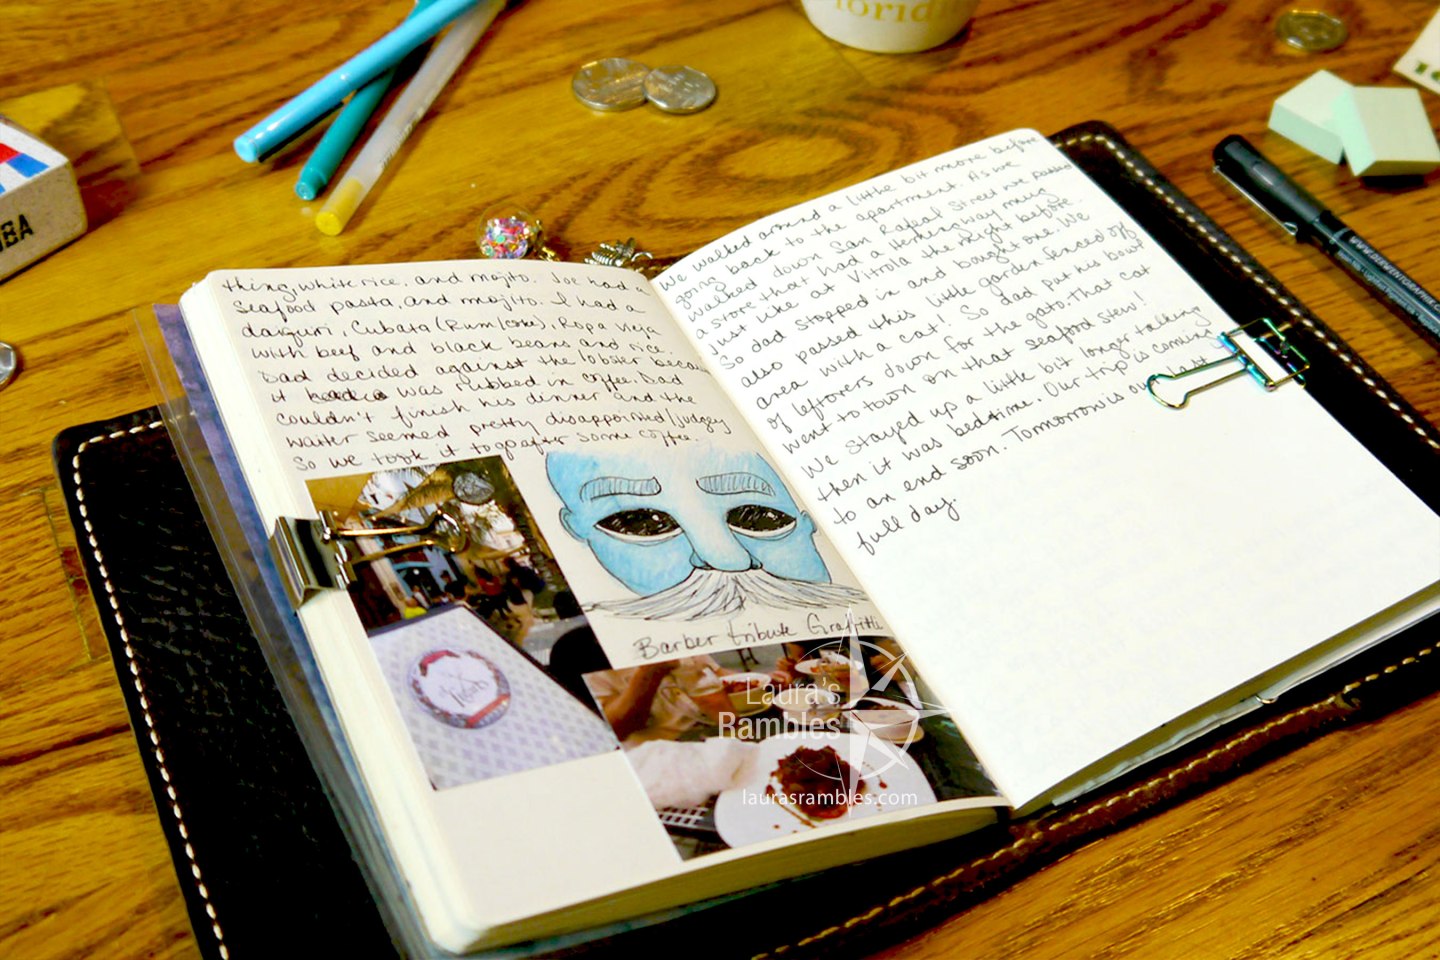 thing, white rice, and mojito. Joe had a
Seafood pasta, and mojito. I had a
daiquri, Cubata (Rum/coke), Ropa vieja
with beef and black beans and rice.
Dad decided against the lobster because
it was rubbed in coffee. Dad
couldn't finish his dinner and the
waiter seemed pretty disappointed/judgey
So we took it to go after some coffee.
Barber tribute Graffitti
We walked around a little bit more before
going back to the apartment. As we
walked down San Rafeal Street we passed
a store that had a Hemingway mug
just like at Vitrola the night before.
So dad stopped in and bought one. We
also passed this little garden fenced off
area with a cat! So dad put his bowl
of leftovers down for the gato. That cat
went to town on that seafood stew!
We stayed up a little bit longer talking
then it was bedtime. Our trip is coming
to an end soon. Tomorrow is our last
full day.
Laura's
Rambles
laurasrambles.com
BA